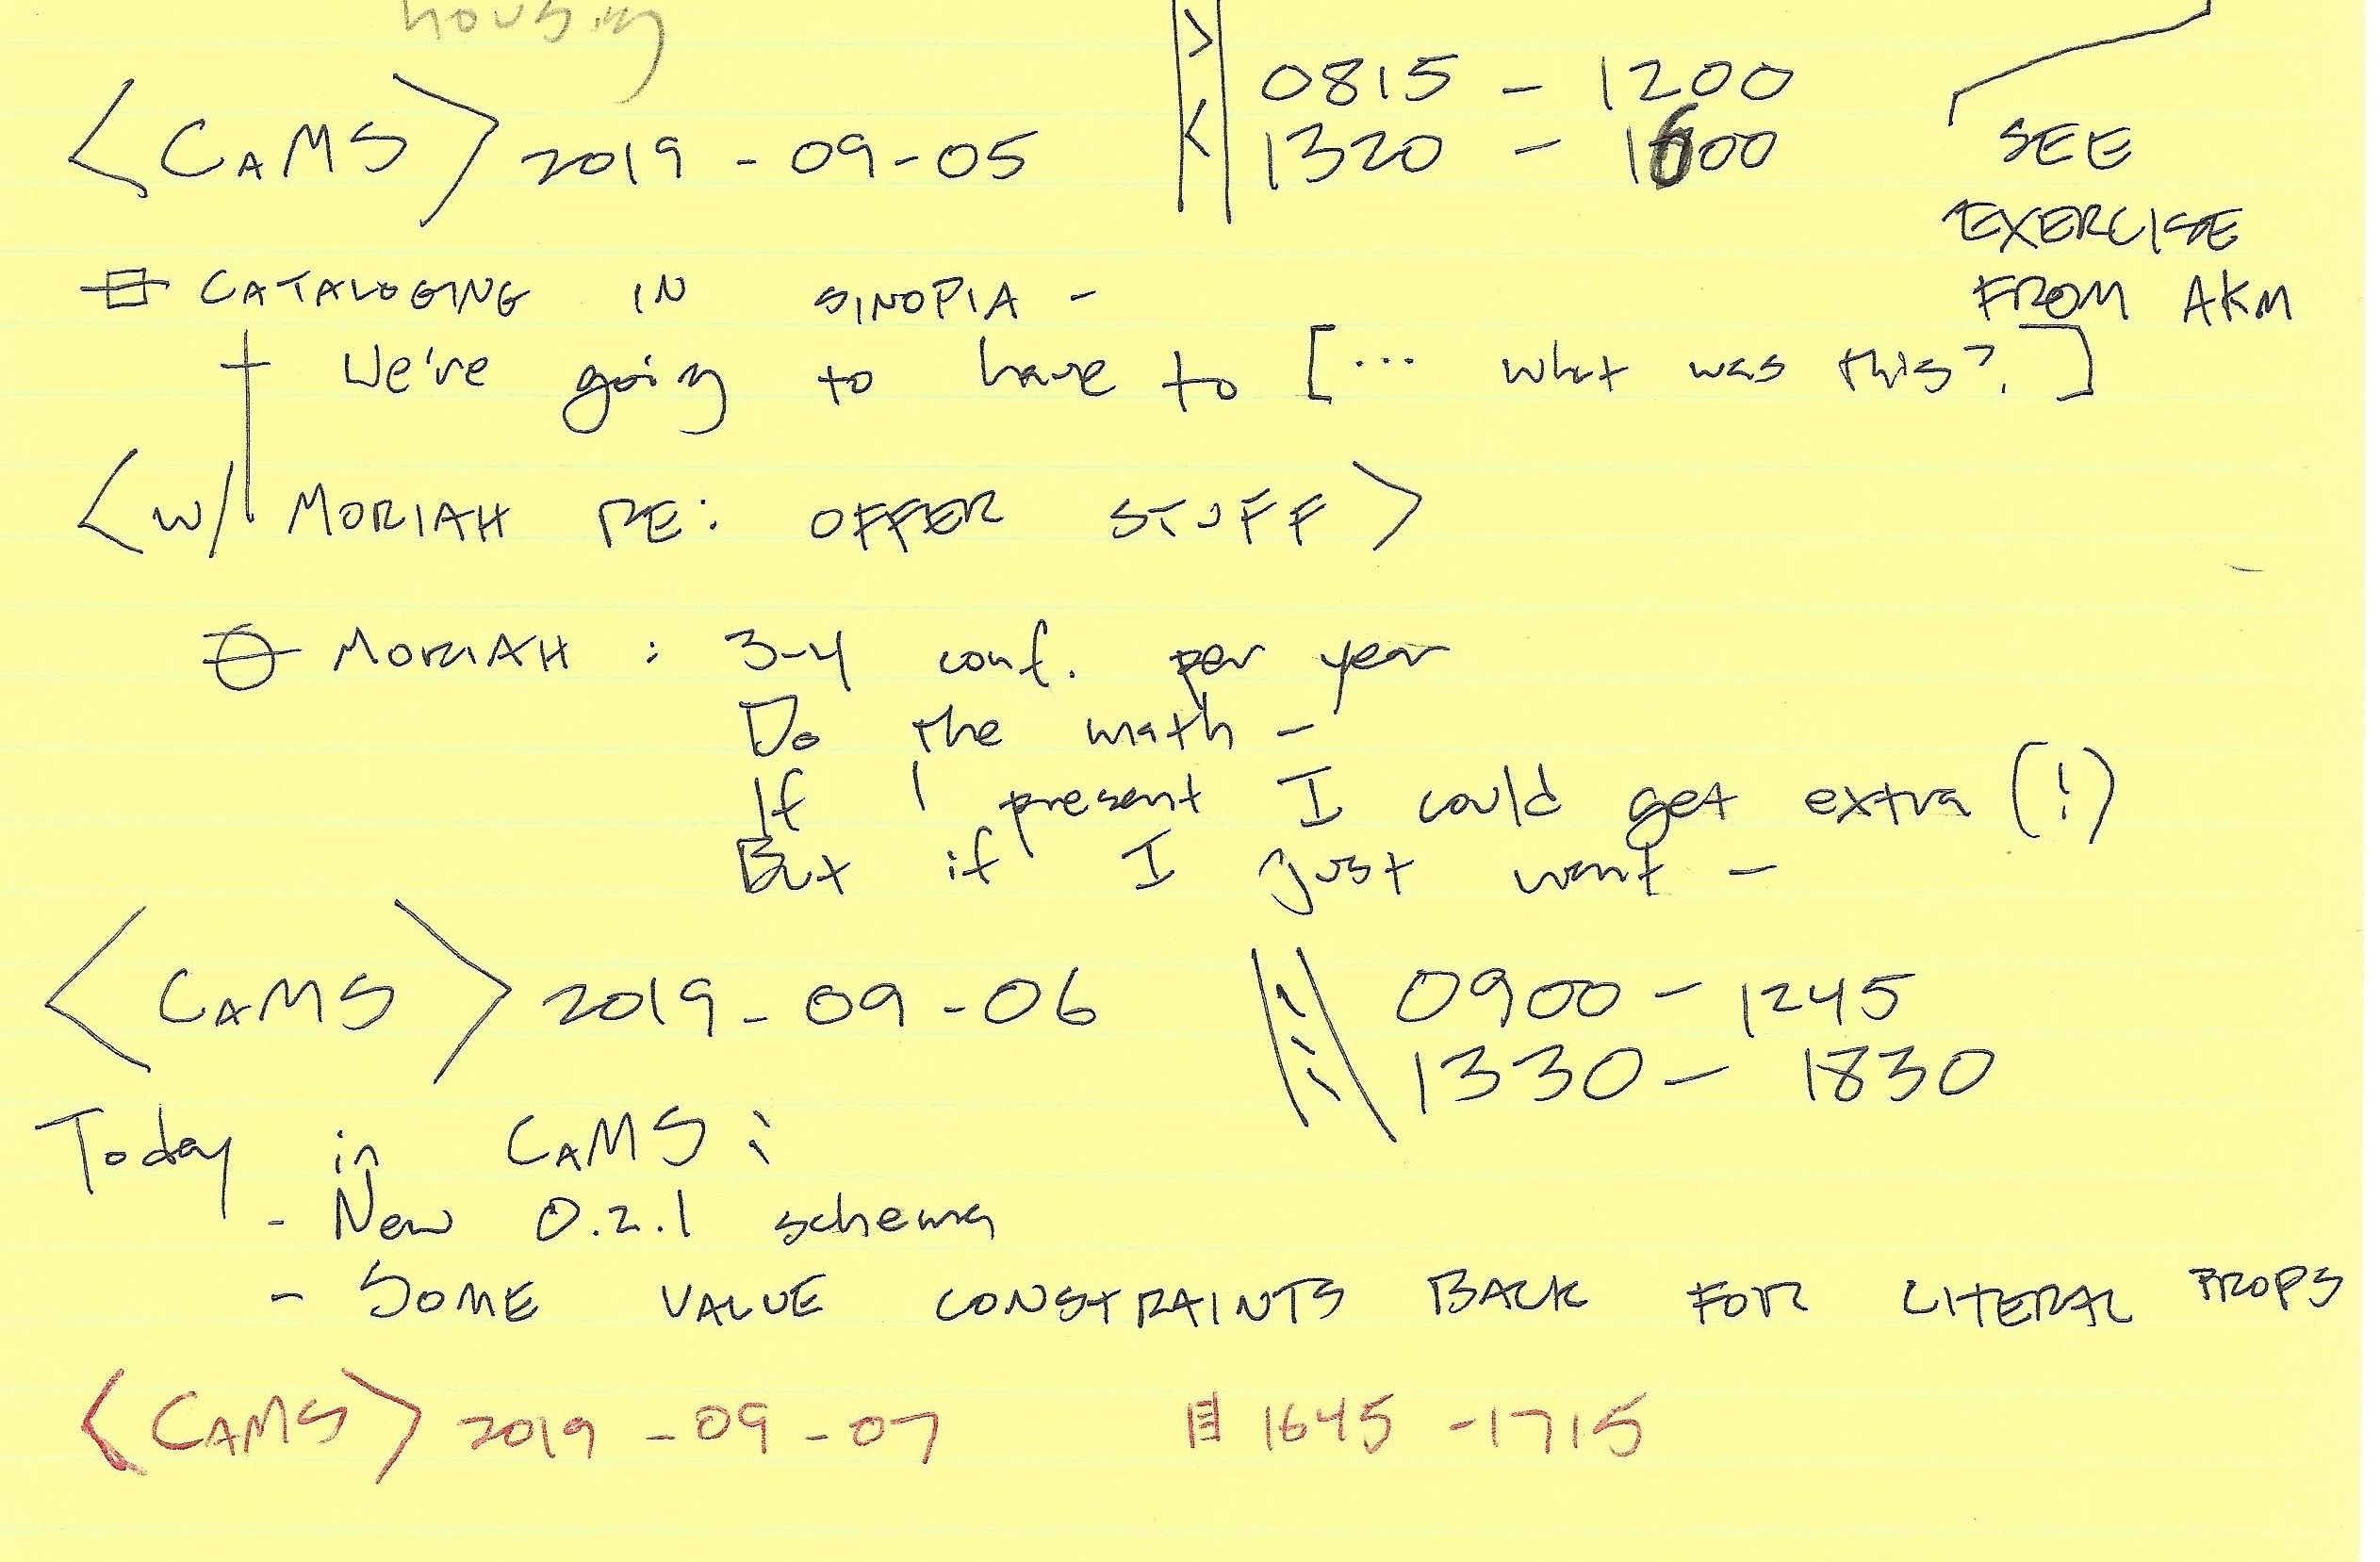 housing
0815 - 1200
<CAMS> 2019-09-05
1320 - 1600
SEE
EXERCISE
FROM AKM
CATALOGING IN SINOPIA -
We're going to have to [... what was this?]
<W/ MORIAH RE: OFFER STUFF>
MORIAH : 3-4 conf. per year
Do the math -
If I present I could get extra (!)
But if I just went -
<CAMS> 2019-09-06
0900 - 1245
1330 - 1830
Today in CAMS:
- New 0.2.1 schema
- SOME VALUE CONSTRAINTS BACK FOR LITERAL PROPS
<CAMS> 2019-09-07 1645 - 1715